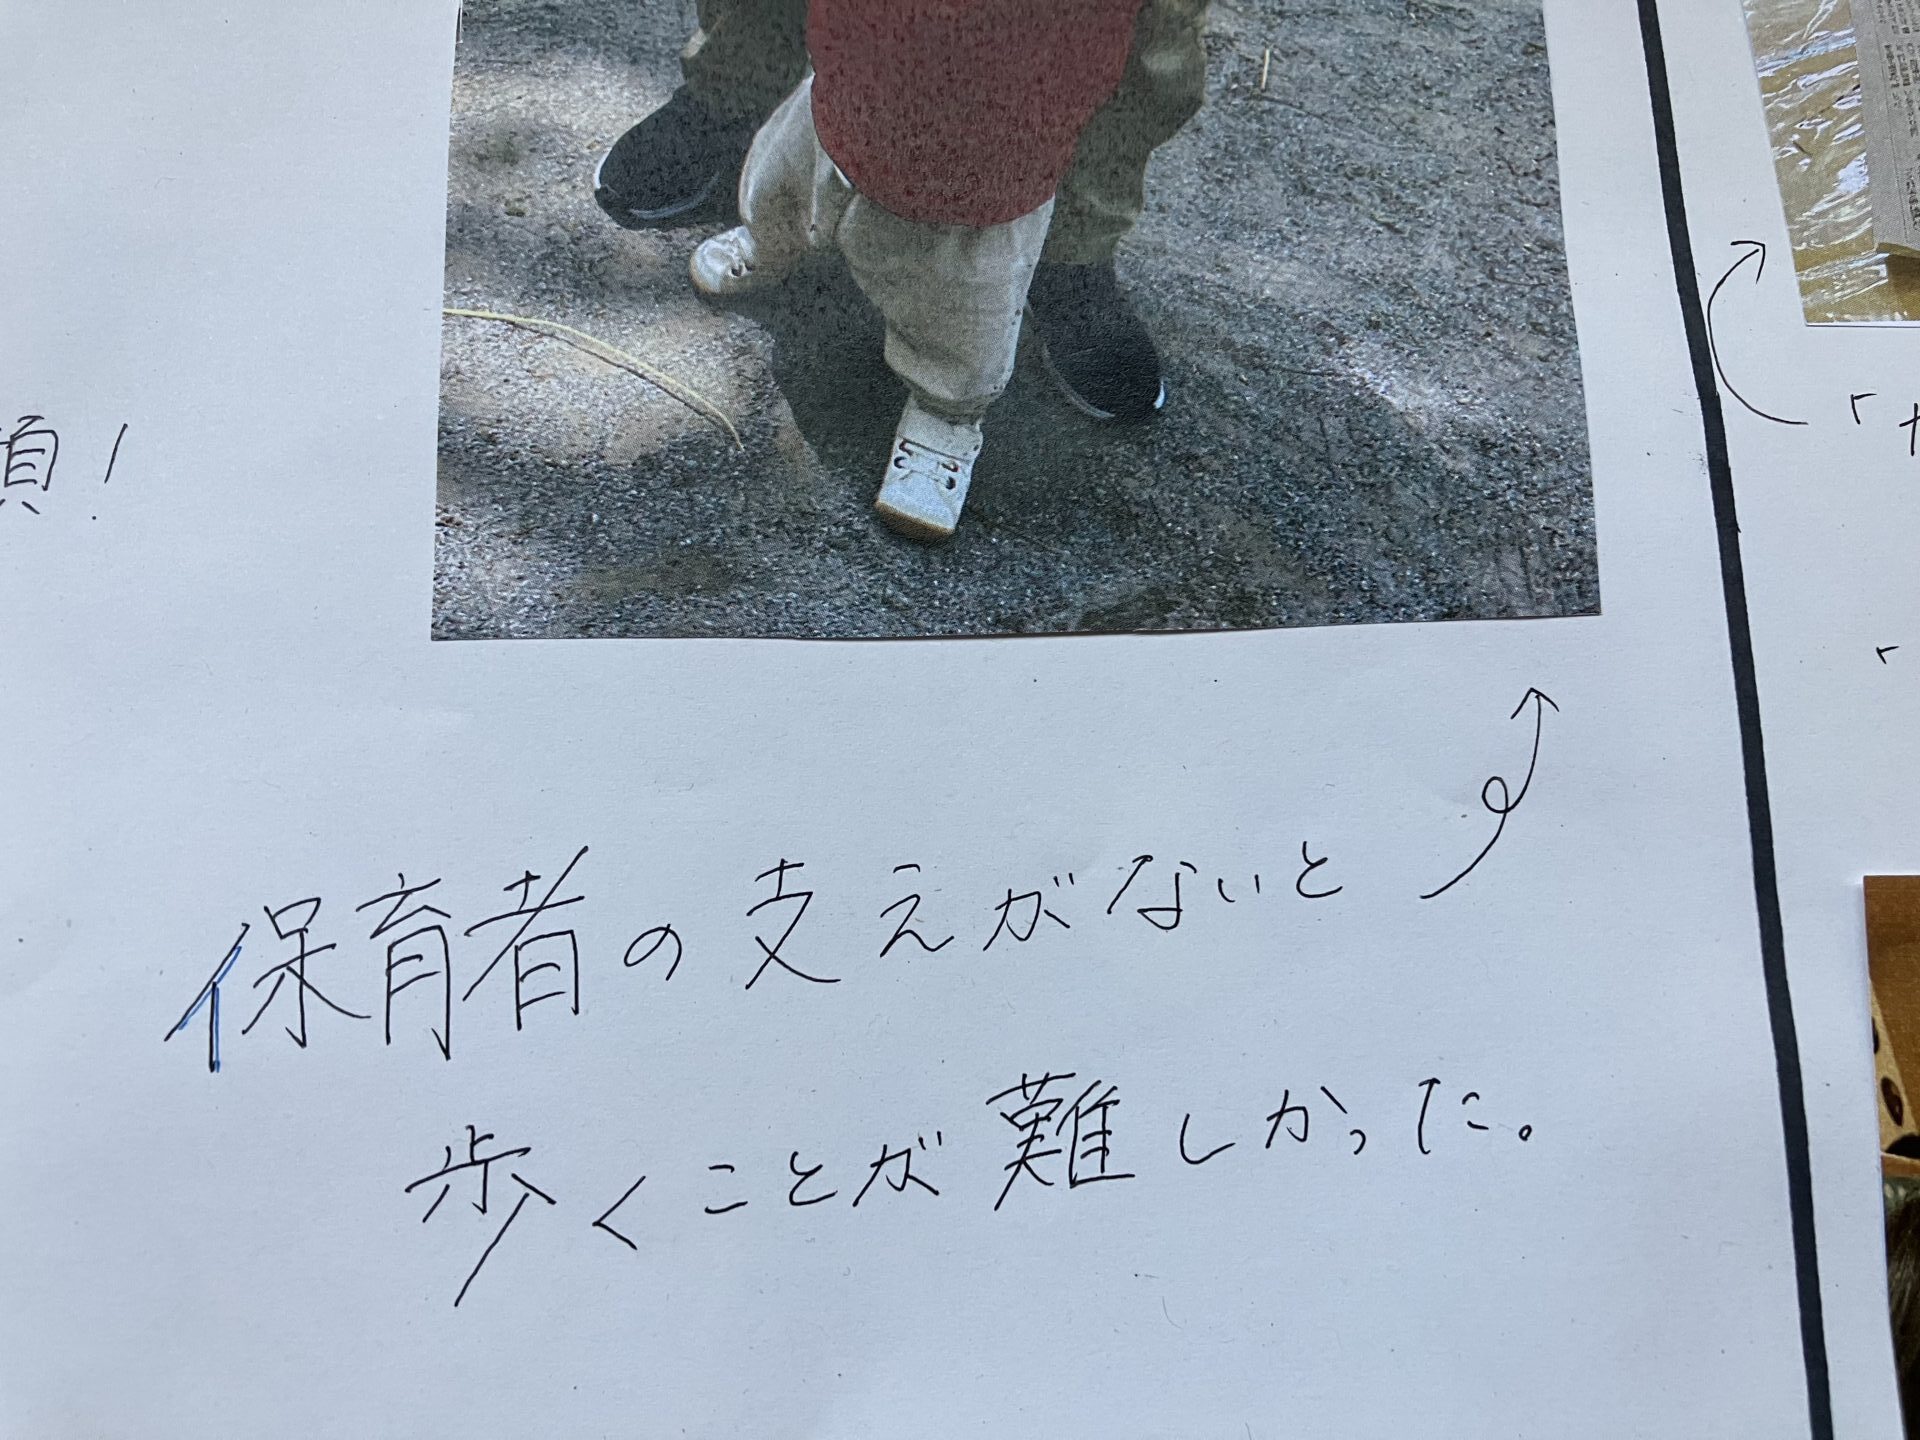 頃!
保育者の支えがないと
歩くことが難しかった。